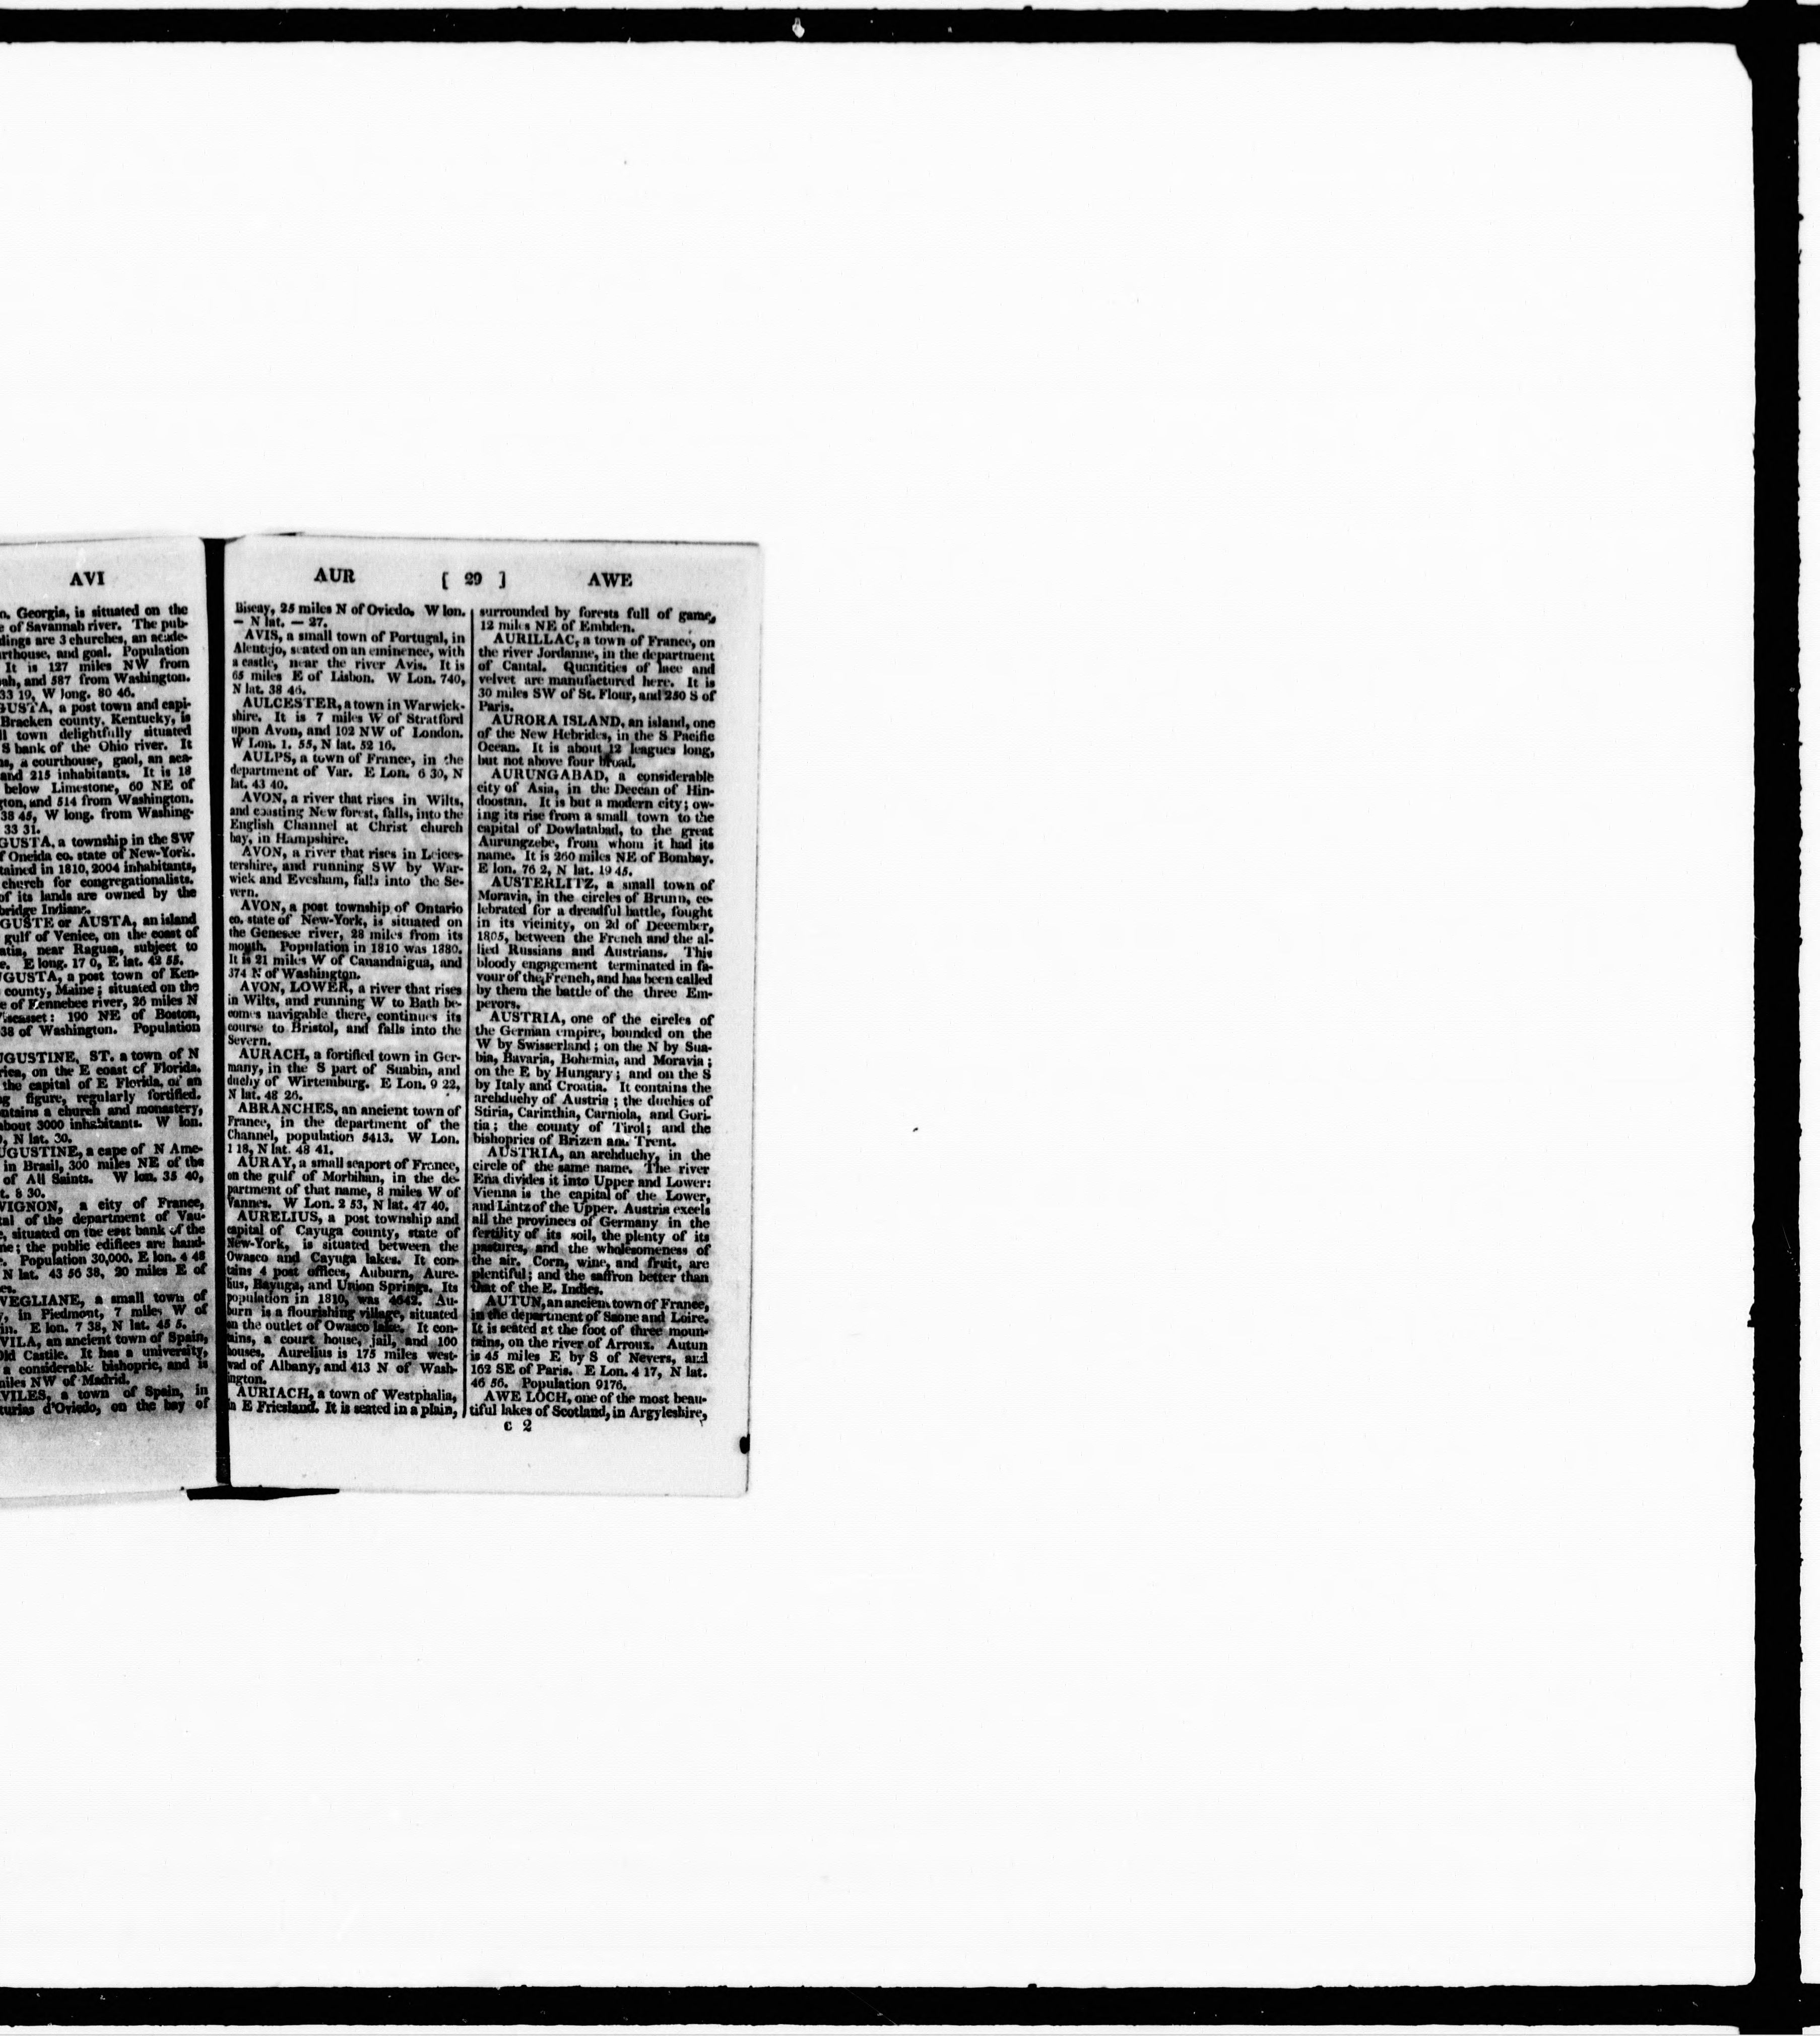 AVI
n. Georgia, is situated on the
e of Savannah river. The pub-
dings are 3 churches, an acade-
urthouse, and goal. Population
It is 127 miles NW from
ah, and 587 from Washington.
33 19, W long. 80 46.
GUSTA, a post town and capi-
Bracken county, Kentucky, is
ll town delightfully situated
S bank of the Ohio river. It
ns, a courthouse, gaol, an aca-
and 215 inhabitants. It is 18
below Limestone, 60 NE of
gton, and 514 from Washington.
38 45, W long. from Washing-
33 31.
GUSTA, a township in the SW
f Oneida co. state of New-York.
tained in 1810, 2004 inhabitants,
church for congregationalists.
of its lands are owned by the
bridge Indians.
GUSTE or AUSTA, an island
gulf of Venice, on the coast of
atia, near Ragusa, subject to
e. E long. 17 0, E lat. 42 55.
UGUSTA, a post town of Ken-
county, Maine; situated on the
e of Kennebec river, 26 miles N
iscasset: 190 NE of Boston,
38 of Washington. Population
UGUSTINE, ST. a town of N
rica, on the E coast of Florida.
the capital of E Florida, of an
g figure, regularly fortified.
ntains a church and monastery,
about 3000 inhabitants. W lon.
, N lat. 30.
UGUSTINE, a cape of N Ame-
in Brasil, 300 miles NE of the
of All Saints. W lon. 35 40,
t. 8 30.
VIGNON, a city of France,
tal of the department of Vau-
e, situated on the east bank of the
ne; the public edifices are hand-
. Population 30,000. E lon. 4 48
N lat. 43 56 38, 20 miles E of
es.
VEGLIANE, a small town of
y, in Piedmont, 7 miles W of
in. E lon. 7 38, N lat. 45 5.
VILA, an ancient town of Spain,
Old Castile. It has a university,
a considerable bishopric, and is
miles NW of Madrid.
VILES, a town of Spain, in
turias d'Oviedo, on the bay of
AUR [ 29 ] AWE
Biscay, 25 miles N of Oviedo. W lon.
— N lat. — 27.
AVIS, a small town of Portugal, in
Alentejo, seated on an eminence, with
a castle, near the river Avis. It is
65 miles E of Lisbon. W Lon. 740,
N lat. 38 46.
AULCESTER, a town in Warwick-
shire. It is 7 miles W of Stratford
upon Avon, and 102 NW of London.
W Lon. 1. 55, N lat. 52 16.
AULPS, a town of France, in the
department of Var. E Lon. 6 30, N
lat. 43 40.
AVON, a river that rises in Wilts,
and coasting New forest, falls, into the
English Channel at Christ church
bay, in Hampshire.
AVON, a river that rises in Leices-
tershire, and running SW by War-
wick and Evesham, falls into the Se-
vern.
AVON, a post township of Ontario
co. state of New-York, is situated on
the Genesee river, 28 miles from its
mouth. Population in 1810 was 1880.
It is 21 miles W of Canandaigua, and
374 N of Washington.
AVON, LOWER, a river that rises
in Wilts, and running W to Bath be-
comes navigable there, continues its
course to Bristol, and falls into the
Severn.
AURACH, a fortified town in Ger-
many, in the S part of Suabia, and
duchy of Wirtemburg. E Lon. 9 22,
N lat. 48 26.
ABRANCHES, an ancient town of
France, in the department of the
Channel, population 5413. W Lon.
1 18, N lat. 48 41.
AURAY, a small seaport of France,
on the gulf of Morbihan, in the de-
partment of that name, 8 miles W of
Vannes. W Lon. 2 53, N lat. 47 40.
AURELIUS, a post township and
capital of Cayuga county, state of
New-York, is situated between the
Owasco and Cayuga lakes. It con-
tains 4 post offices, Auburn, Aure-
lius, Bayuga, and Union Springs. Its
population in 1810, was 4642. Au-
burn is a flourishing village, situated
on the outlet of Owasco lake. It con-
tains, a court house, jail, and 100
houses. Aurelius is 175 miles west-
wad of Albany, and 413 N of Wash-
ington.
AURIACH, a town of Westphalia,
in E Friesland. It is seated in a plain,
surrounded by forests full of game,
12 miles NE of Embden.
AURILLAC, a town of France, on
the river Jordanne, in the department
of Cantal. Quantities of lace and
velvet are manufactured here. It is
30 miles SW of St. Flour, and 250 S of
Paris.
AURORA ISLAND, an island, one
of the New Hebrides, in the S Pacific
Ocean. It is about 12 leagues long,
but not above four broad.
AURUNGABAD, a considerable
city of Asia, in the Deccan of Hin-
doostan. It is but a modern city; ow-
ing its rise from a small town to the
capital of Dowlatabad, to the great
Aurungzebe, from whom it had its
name. It is 260 miles NE of Bombay.
E lon. 76 2, N lat. 19 45.
AUSTERLITZ, a small town of
Moravia, in the circles of Brunn, ce-
lebrated for a dreadful battle, fought
in its vicinity, on 2d of December,
1805, between the French and the al-
lied Russians and Austrians. This
bloody engagement terminated in fa-
vour of the French, and has been called
by them the battle of the three Em-
perors.
AUSTRIA, one of the circles of
the German empire, bounded on the
W by Swisserland; on the N by Sua-
bia, Bavaria, Bohemia, and Moravia;
on the E by Hungary; and on the S
by Italy and Croatia. It contains the
archduchy of Austria; the duchies of
Stiria, Carinthia, Carniola, and Gori-
tia; the county of Tirol; and the
bishoprics of Brizen and Trent.
AUSTRIA, an archduchy, in the
circle of the same name. The river
Ena divides it into Upper and Lower:
Vienna is the capital of the Lower,
and Lintz of the Upper. Austria excels
all the provinces of Germany in the
fertility of its soil, the plenty of its
pastures, and the wholesomeness of
the air. Corn, wine, and fruit, are
plentiful; and the saffron better than
that of the E. Indies.
AUTUN, an ancient town of France,
in the department of Saone and Loire.
It is seated at the foot of three moun-
tains, on the river of Arroux. Autun
is 45 miles E by S of Nevers, and
162 SE of Paris. E Lon. 4 17, N lat.
46 56. Population 9176.
AWE LOCH, one of the most beau-
tiful lakes of Scotland, in Argyleshire,
C 2